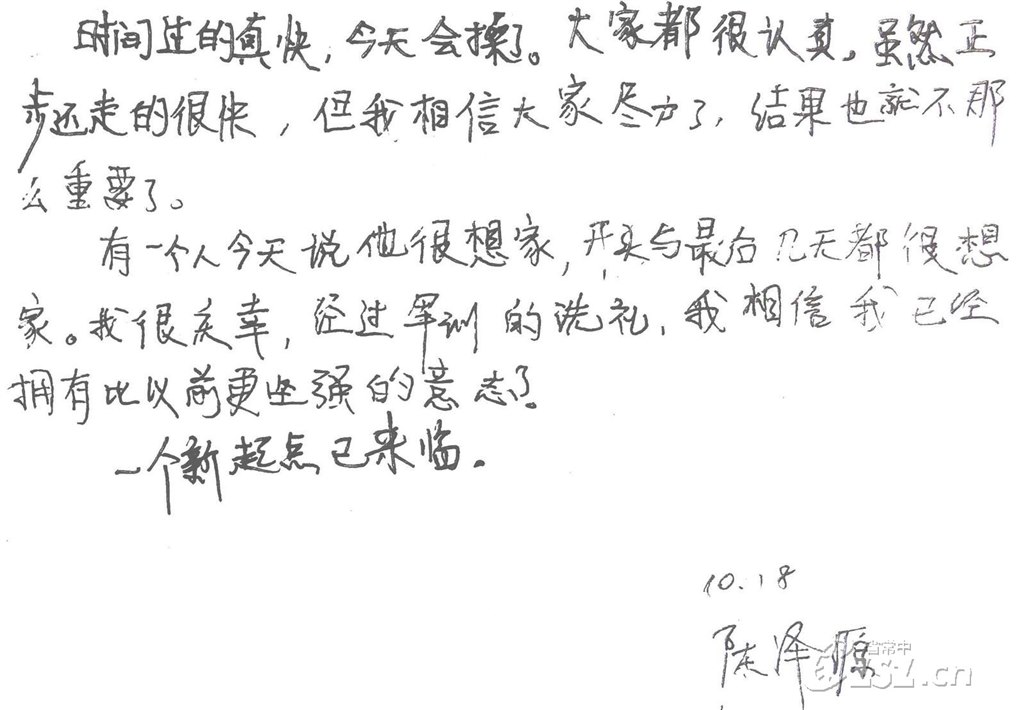 时间过的真快，今天会操了。大家都很认真，虽然正
步还走的很快，但我相信大家尽力了，结果也就不那
么重要了。
有一个人今天说他很想家，开头与最后几天都很想
家。我很庆幸，经过军训的洗礼，我相信我已经
拥有比以前更坚强的意志了。
一个新起点已来临。
10.18
陈泽源
省常中
CSZ.cn